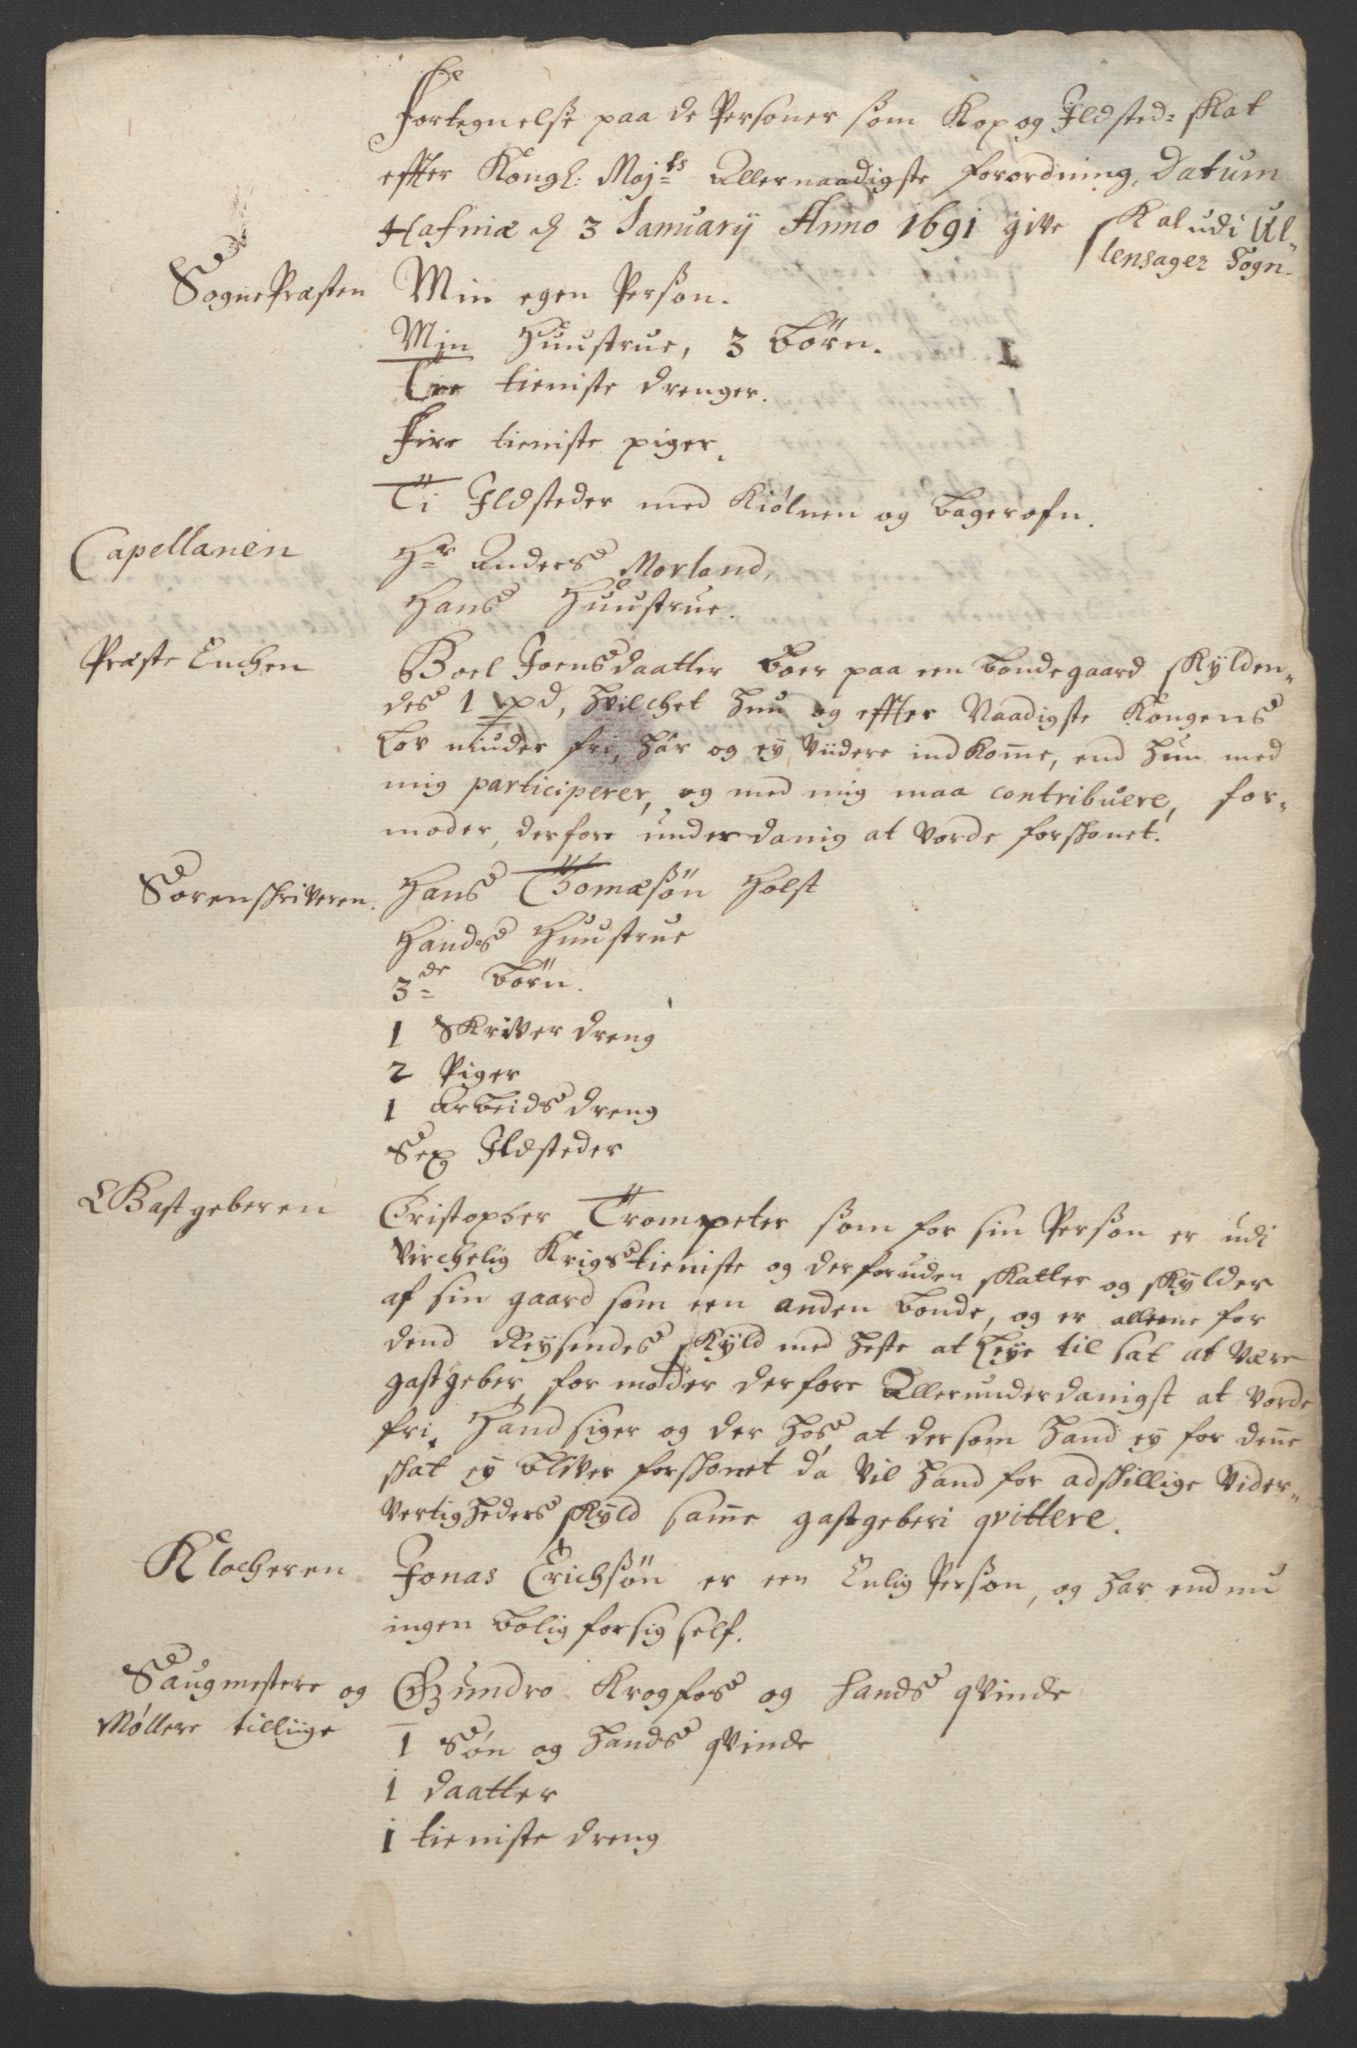 Fortegnelse paa de Personer som Kop og Ildsted= skat
effter Kongl: Maj:ts Allernaadigste forordning, Datum
Hafniæ d 3 Januarij Anno 1691 give skal udi Ul=
lensager Sogn.
SognePræsten Min egen Person.
Min Huustrue, 3 børn.
Toe tieniste drenger.
Fire tieniste piger.
Ti Ildsteder med Kiølnen og bagerofn.
Capellanen Hr Anders Morland,
Hans Huustrue.
Præste Enchen Boel Joensdaatter boer paa een bondegaard skylden=
des 1 pd, hvilchet hun og effter Naadigste Kongens
Lov niuder fri, hår og ey viidere indkom̅e, end hun med
mig participerer, og med mig maa contribuere, for=
moder, derfore underdanig at vorde forskonet.
Sorenskriveren. Hans Thomæsøn Holst
Hands Huustrue
3de børn.
1 Skriver dreng
2 Piger
1 Arbeids dreng
Sex Ildsteder
Gastgeberen Christopher Trompeter som for sin Person er udi
virchelig Krigstieniste og derforuden skatter og skylder
af sin gaard som een anden bonde, og er alleene for
dend Reysendes skyld med heste at Leye til sat at være
gastgeber, formoder derfore Allerunderdanigst at vorde
fri. Hand siger og der hos, at dersom hand ey for den̅e
skat ey bliver forskonet da vil hand for adskillige vider=
vertigheders skyld sam̅e gastgeberi qvittere.
Klocheren Jonas Erichsøn er een Enlig Person, og har end nu
ingen bolig for sig self.
Saugmestere og Gundro Krogfos og hands qvinde
Møllere tilliige 1 Søn og hands qvinde
1 daatter
1 tieniste dreng